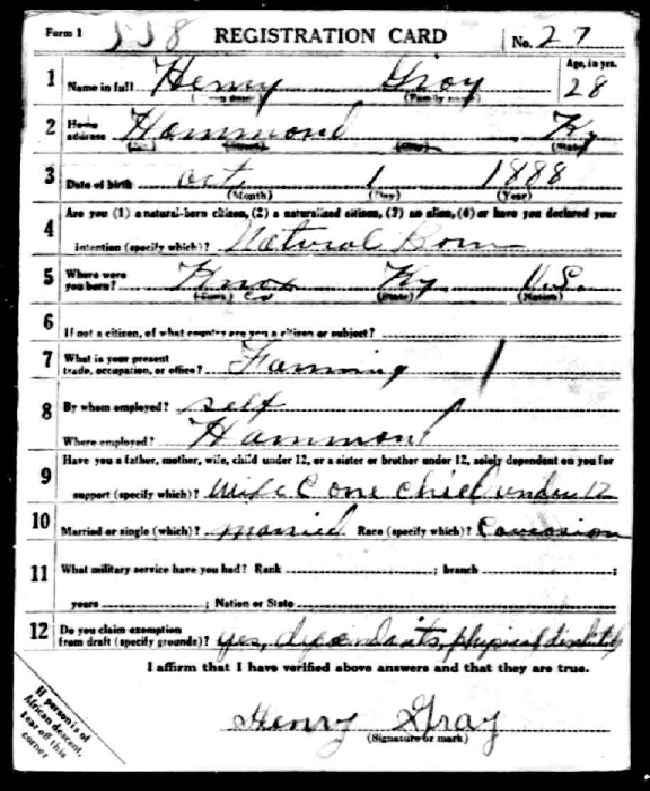 Form 1 558 REGISTRATION CARD No. 27
1 Name in full Henry Gray Age, in yrs. 28
(Given name) (Family name)
2 Home address Hammond Ky
(No.) (Street) (City) (State)
3 Date of birth Oct. 1 1888
(Month) (Day) (Year)
4 Are you (1) a natural-born citizen, (2) a naturalized citizen, (3) an alien, (4) or have you declared your
intention (specify which)? Natural Born
5 Where were you born? Knox Co Ky U.S.
(Town) (State) (Nation)
6 If not a citizen, of what country are you a citizen or subject?
7 What is your present trade, occupation, or office? Farming
8 By whom employed? self
Where employed? Hammond
9 Have you a father, mother, wife, child under 12, or a sister or brother under 12, solely dependent on you for
support (specify which)? Wife & one child under 12
10 Married or single (which)? married Race (specify which)? Caucasion
11 What military service have you had? Rank ; branch ;
years ; Nation or State
12 Do you claim exemption
from draft (specify grounds)? yes, dependants, physical disability
I affirm that I have verified above answers and that they are true.
Henry Gray
(Signature or mark)
If person is of
African descent,
tear off this
corner